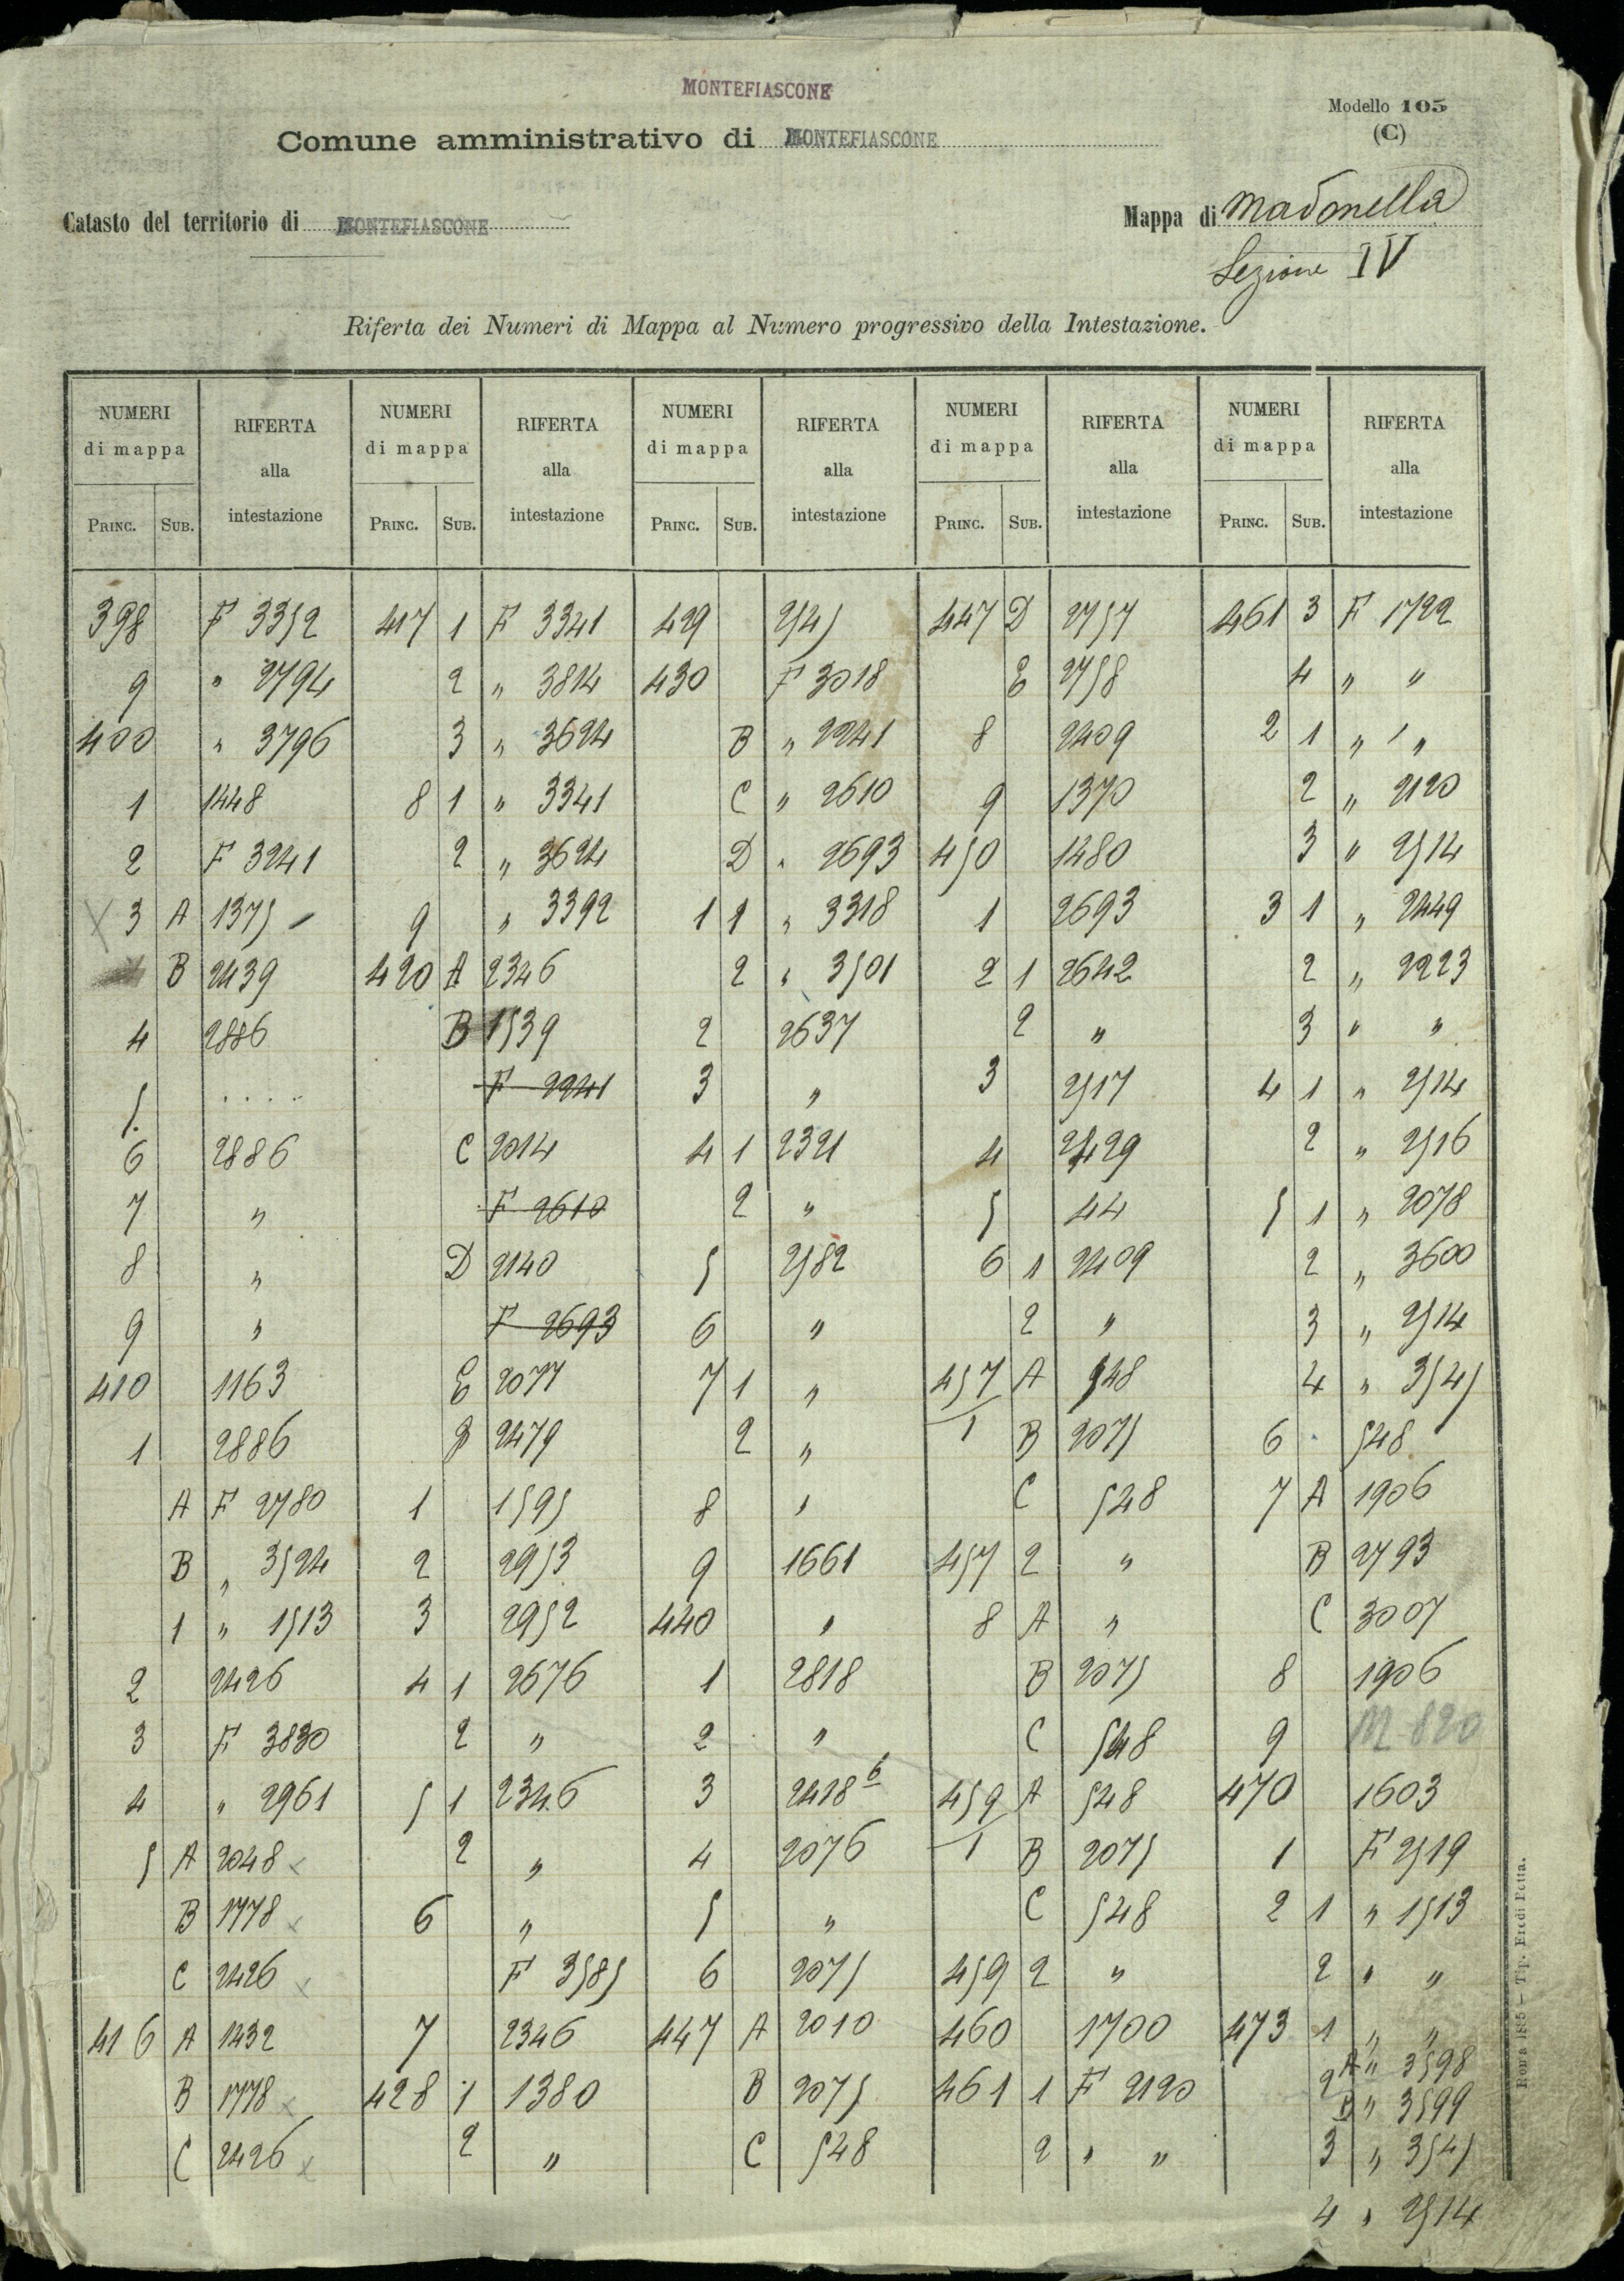 MONTEFIASCONE
Modello 105
(C)
Comune amministrativo di MONTEFIASCONE
Catasto del territorio di MONTEFIASCONE
Mappa di Madonella
Sezione IV
Riferta dei Numeri di Mappa al Numero progressivo della Intestazione.
NUMERI di mappa RIFERTA alla intestazione NUMERI di mappa RIFERTA alla intestazione NUMERI di mappa RIFERTA alla intestazione NUMERI di mappa RIFERTA alla intestazione NUMERI di mappa RIFERTA alla intestazione
PRINC. SUB. PRINC. SUB. PRINC. SUB. PRINC. SUB. PRINC. SUB.
398 F 3352 417 1 F 3341 429 2545 447 D 2757 461 3 F 1722
9 " 2794 2 " 3814 430 F 3018 E 2758 4 " "
400 " 3796 3 " 3624 B " 2241 8 2409 2 1 " 1 "
1 1448 8 1 " 3341 C " 2610 9 1370 2 " 2120
2 F 3241 2 " 3624 D " 2693 450 1480 3 " 2514
X 3 A 1375 9 " 3392 1 1 " 3318 1 2693 3 1 " 2449
B 2439 420 A 2346 2 " 3501 2 1 2642 2 " 2223
4 2886 B 1539 2 2637 2 " 3 " "
5 .... F 2241 3 " 3 2517 4 1 " 2514
6 2886 C 2014 4 1 2321 4 2429 2 " 2516
7 " F 2610 2 " 5 44 5 1 " 2078
8 " D 2140 5 2582 6 1 2409 2 " 3600
9 " F 2693 6 " 2 " 3 " 2514
410 1163 E 2077 7 1 " 457 A 548 4 " 3545
1 2886 2479 2 " 1 B 2075 6 548
A F 2780 1 1595 8 " C 548 7 A 1906
B " 3524 2 2953 9 1661 457 2 " B 2793
1 " 1513 3 2952 440 " 8 A " C 3007
2 2426 4 1 2676 1 2818 B 2075 8 1906
3 F 3830 2 " 2 " C 548 9 M 820
4 " 2961 5 1 2346 3 2418 6 459 A 548 470 1603
5 A 2048 x 2 " 4 2076 1 B 2075 1 F 2519
B 1778 x 6 " 5 " C 548 2 1 " 1513
C 2426 x F 3585 6 2075 459 2 " 2 " "
416 A 1432 7 2346 447 A 2010 460 1700 473 1 " "
B 1778 x 428 1 1380 B 2075 461 1 F 2120 2 A " 3598
B " 3599
C 2426 x 2 " C 548 2 " " 3 " 3545
4 " 2514
Roma 1885 — Tip. Eredi Botta.